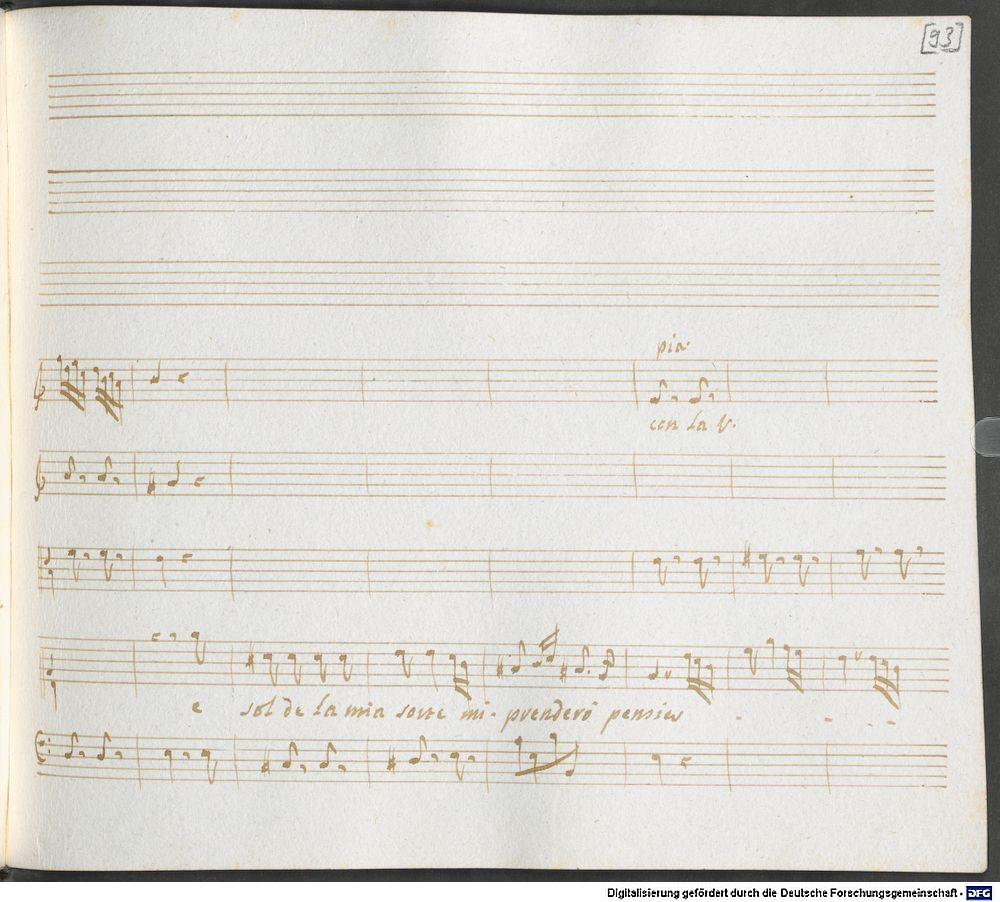 [93]
pia.
con la V.
e sol de la mia sorte mi. prenderò pensier
Digitalisierung gefördert durch die Deutsche Forschungsgemeinschaft - DFG